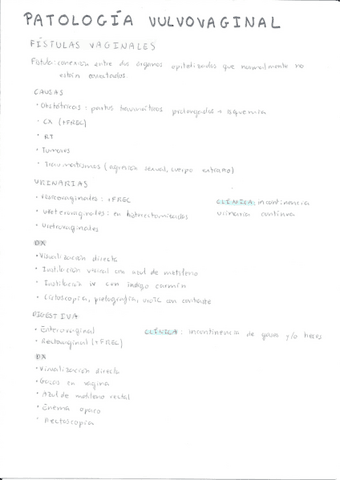 PATOLOGÍA VULVOVAGINAL
FÍSTULAS VAGINALES
Fístula: conexión entre dos órganos epitelizados que normalmente no
están conectados.
CAUSAS
• Obstétricos: partos traumáticos prolongados + isquemia
• CX (+FREC)
• RT
• Tumores
• Traumatismos (agresión sexual, cuerpo extraño)
URINARIAS
• Vesicovaginales: +FREC
CLÍNICA: incontinencia
• Ureterovaginales: en histerectomizadas
urinaria continua
• Uretrovaginales
DX
• Visualización directa
• Instilación vesical con azul de metileno
• Instilación IV con índigo carmín
• Cistoscopia, pielografía, con contraste
DIGESTIVA
• Enterovaginal
CLÍNICA: incontinencia de gases y/o heces
• Rectovaginal (+FREC)
DX
• Visualización directa
• Gases en vagina
• Azul de metileno rectal
• Enema opaco
• Rectoscopia